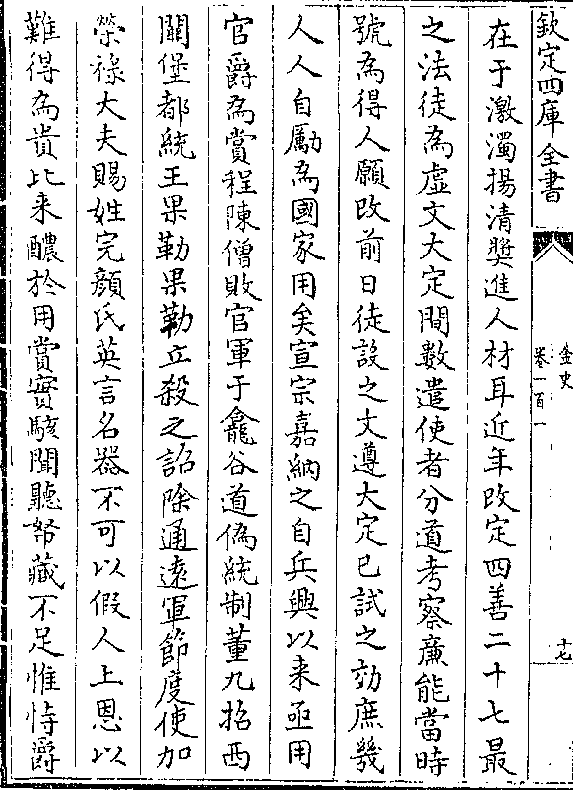 欽定四庫全書
金史
卷一百一
十七
在于激濁揚清奬進人材耳近年改定四善二十七最
之法徒為虚文大定間數遣使者分道考察廉能當時
號為得人願改前日徒設之文遵大定已試之効庶幾
人人自勵為國家用矣宣宗嘉納之自兵興以来亟用
官爵為賞程陳僧敗官軍于龕谷道偽統制董九招西
關堡都統王果勒果勒立殺之詔除通遠軍節度使加
榮祿大夫賜姓完顔氏英言名器不可以假人上恩以
難得為貴比来醲於用賞實駭聞聽帑藏不足惟恃爵